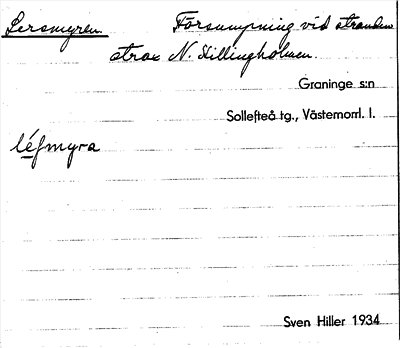 Lersmyren Försumpning vid stranden
strax N. Killingholmen.
Graninge s:n
Sollefteå tg., Västernorrl. l.
Sven Hiller 1934